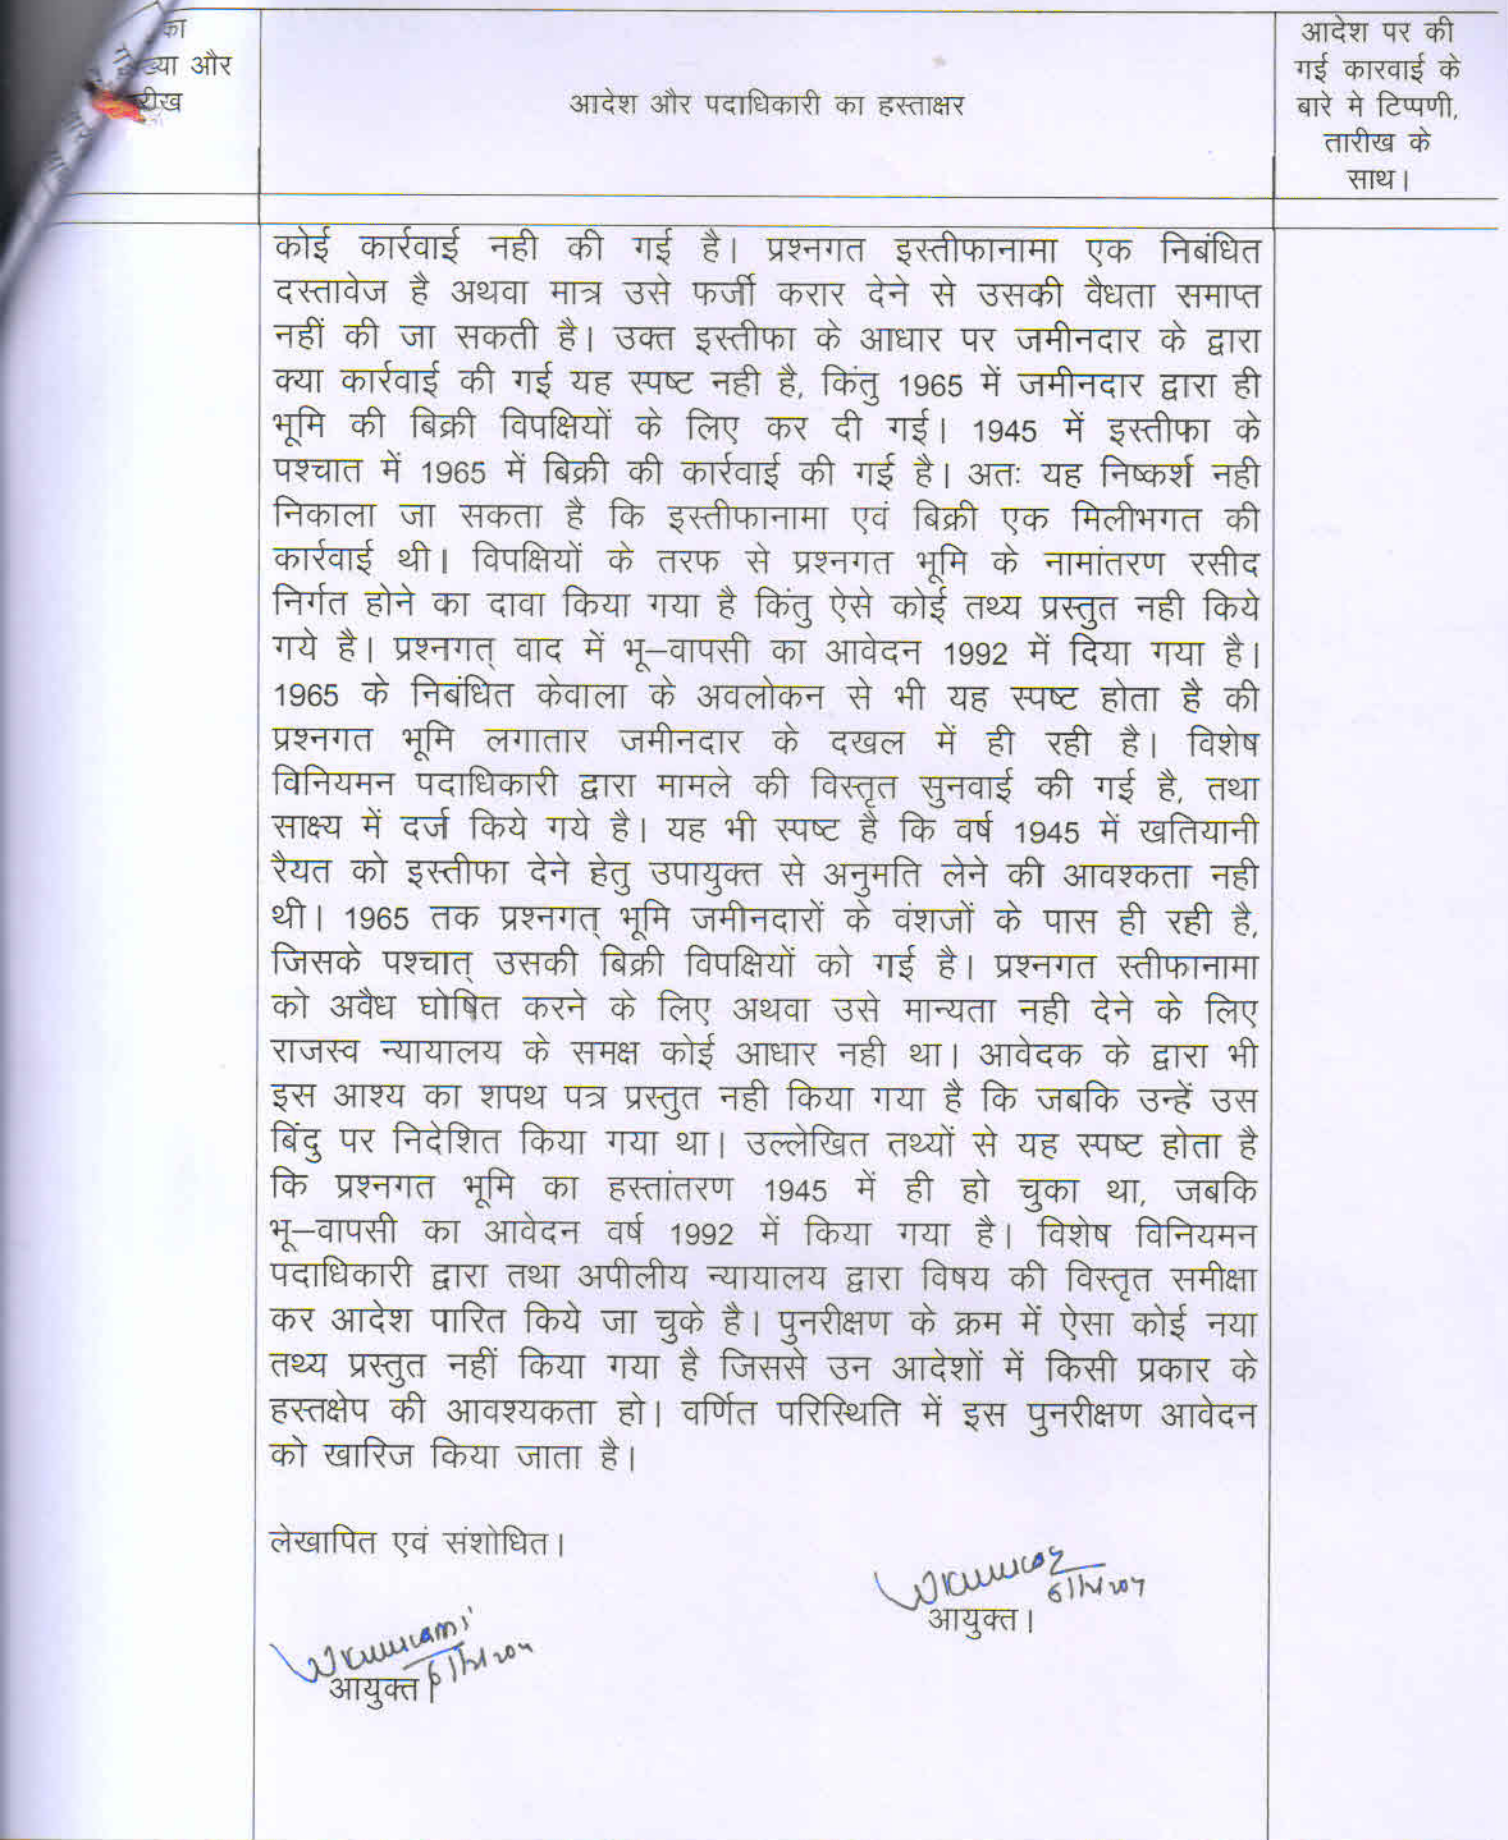 का
ख्या और
रीख
आदेश और पदाधिकारी का हस्ताक्षर
आदेश पर की
गई कारवाई के
बारे मे टिप्पणी,
तारीख के
साथ।
कोई कार्रवाई नही की गई है। प्रश्नगत इस्तीफानामा एक निबंधित
दस्तावेज है अथवा मात्र उसे फर्जी करार देने से उसकी वैधता समाप्त
नहीं की जा सकती है। उक्त इस्तीफा के आधार पर जमीनदार के द्वारा
क्या कार्रवाई की गई यह स्पष्ट नही है, किंतु 1965 में जमीनदार द्वारा ही
भूमि की बिक्री विपक्षियों के लिए कर दी गई। 1945 में इस्तीफा के
पश्चात में 1965 में बिक्री की कार्रवाई की गई है। अतः यह निष्कर्श नही
निकाला जा सकता है कि इस्तीफानामा एवं बिक्री एक मिलीभगत की
कार्रवाई थी। विपक्षियों के तरफ से प्रश्नगत भूमि के नामांतरण रसीद
निर्गत होने का दावा किया गया है किंतु ऐसे कोई तथ्य प्रस्तुत नही किये
गये है। प्रश्नगत् वाद में भू–वापसी का आवेदन 1992 में दिया गया है।
1965 के निबंधित केवाला के अवलोकन से भी यह स्पष्ट होता है की
प्रश्नगत भूमि लगातार जमीनदार के दखल में ही रही है। विशेष
विनियमन पदाधिकारी द्वारा मामले की विस्तृत सुनवाई की गई है, तथा
साक्ष्य में दर्ज किये गये है। यह भी स्पष्ट है कि वर्ष 1945 में खतियानी
रैयत को इस्तीफा देने हेतु उपायुक्त से अनुमति लेने की आवश्कता नही
थी। 1965 तक प्रश्नगत् भूमि जमीनदारों के वंशजों के पास ही रही है,
जिसके पश्चात् उसकी बिक्री विपक्षियों को गई है। प्रश्नगत स्तीफानामा
को अवैध घोषित करने के लिए अथवा उसे मान्यता नही देने के लिए
राजस्व न्यायालय के समक्ष कोई आधार नही था। आवेदक के द्वारा भी
इस आश्य का शपथ पत्र प्रस्तुत नही किया गया है कि जबकि उन्हें उस
बिंदु पर निदेशित किया गया था। उल्लेखित तथ्यों से यह स्पष्ट होता है
कि प्रश्नगत भूमि का हस्तांतरण 1945 में ही हो चुका था, जबकि
भू–वापसी का आवेदन वर्ष 1992 में किया गया है। विशेष विनियमन
पदाधिकारी द्वारा तथा अपीलीय न्यायालय द्वारा विषय की विस्तृत समीक्षा
कर आदेश पारित किये जा चुके है। पुनरीक्षण के क्रम में ऐसा कोई नया
तथ्य प्रस्तुत नहीं किया गया है जिससे उन आदेशों में किसी प्रकार के
हस्तक्षेप की आवश्यकता हो। वर्णित परिस्थिति में इस पुनरीक्षण आवेदन
को खारिज किया जाता है।
लेखापित एवं संशोधित।
आयुक्त।
आयुक्त।